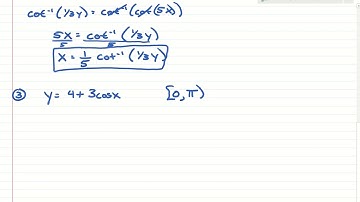 cot⁻¹(1/3 y) = cot⁻¹(cot(5x))
5x/5 = cot⁻¹(1/3 y)/5
x = 1/5 cot⁻¹(1/3 y)
③ y = 4 + 3cosx [0, π)